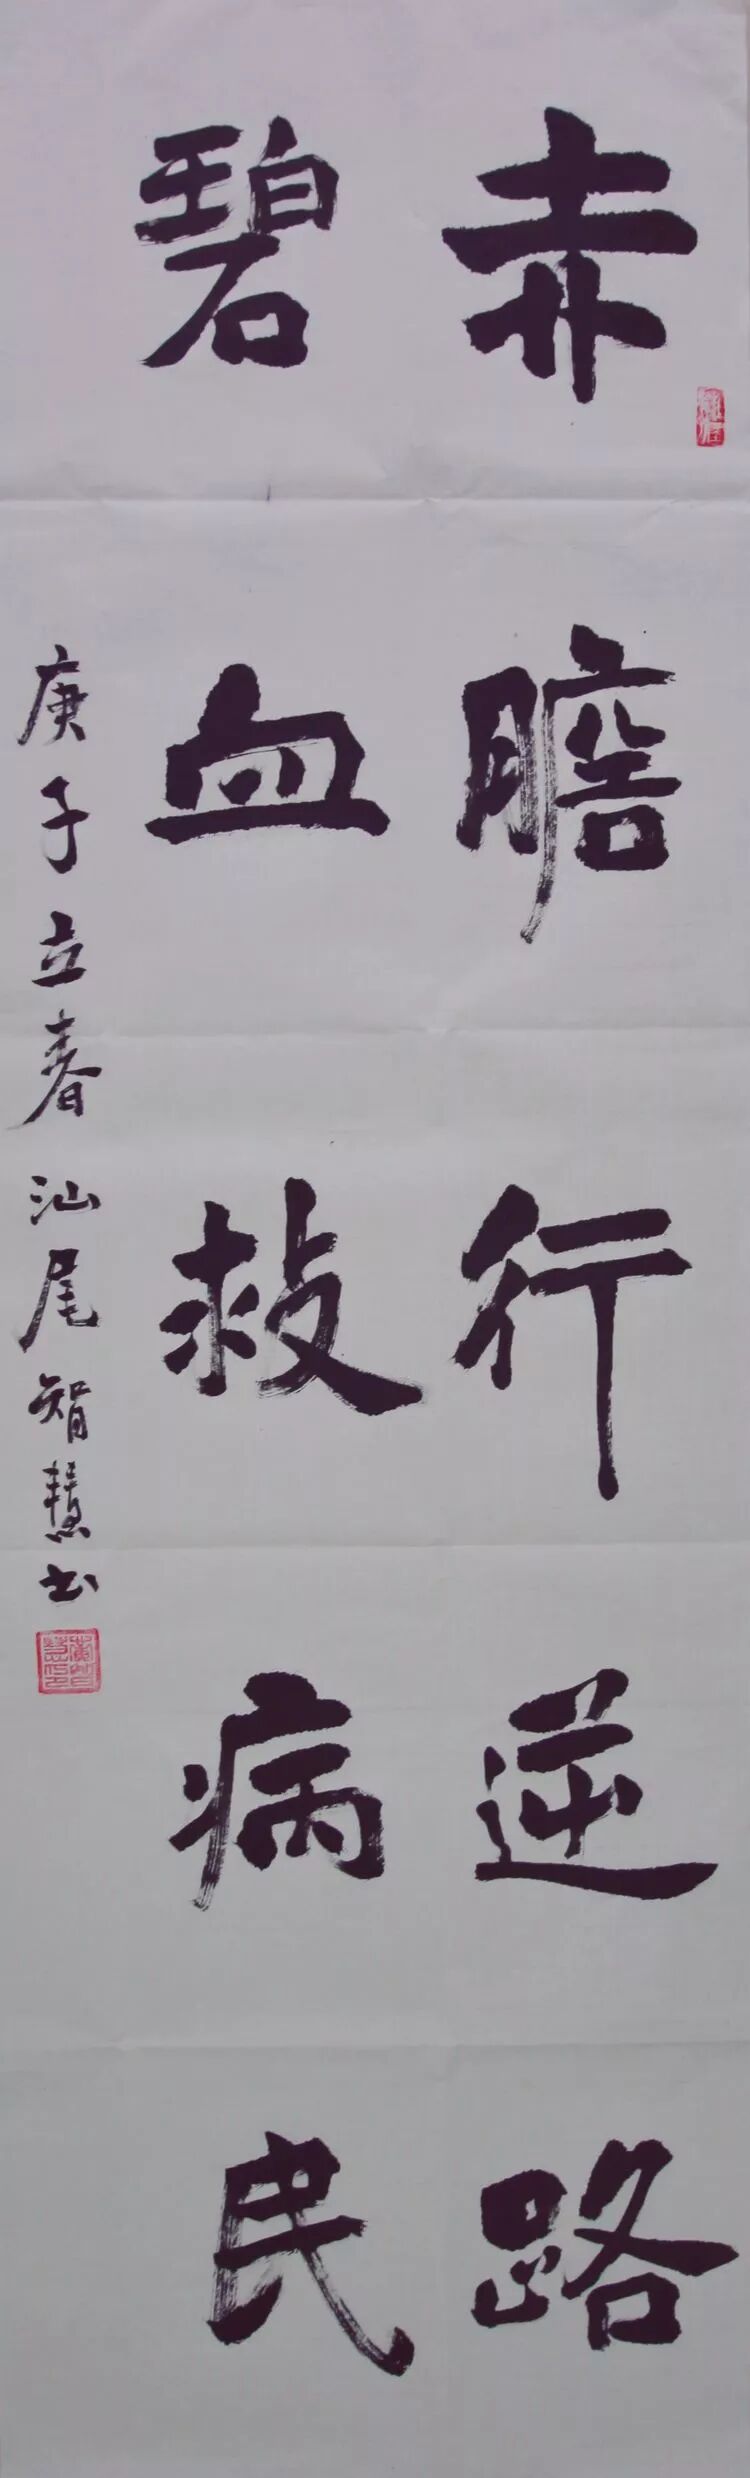 赤膽行逆路
碧血救病民
庚子立春汕尾智慧书